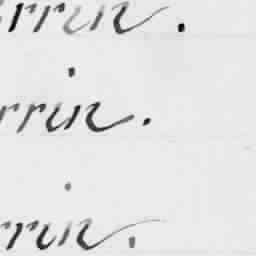 rrin.
rrin.
rrin.